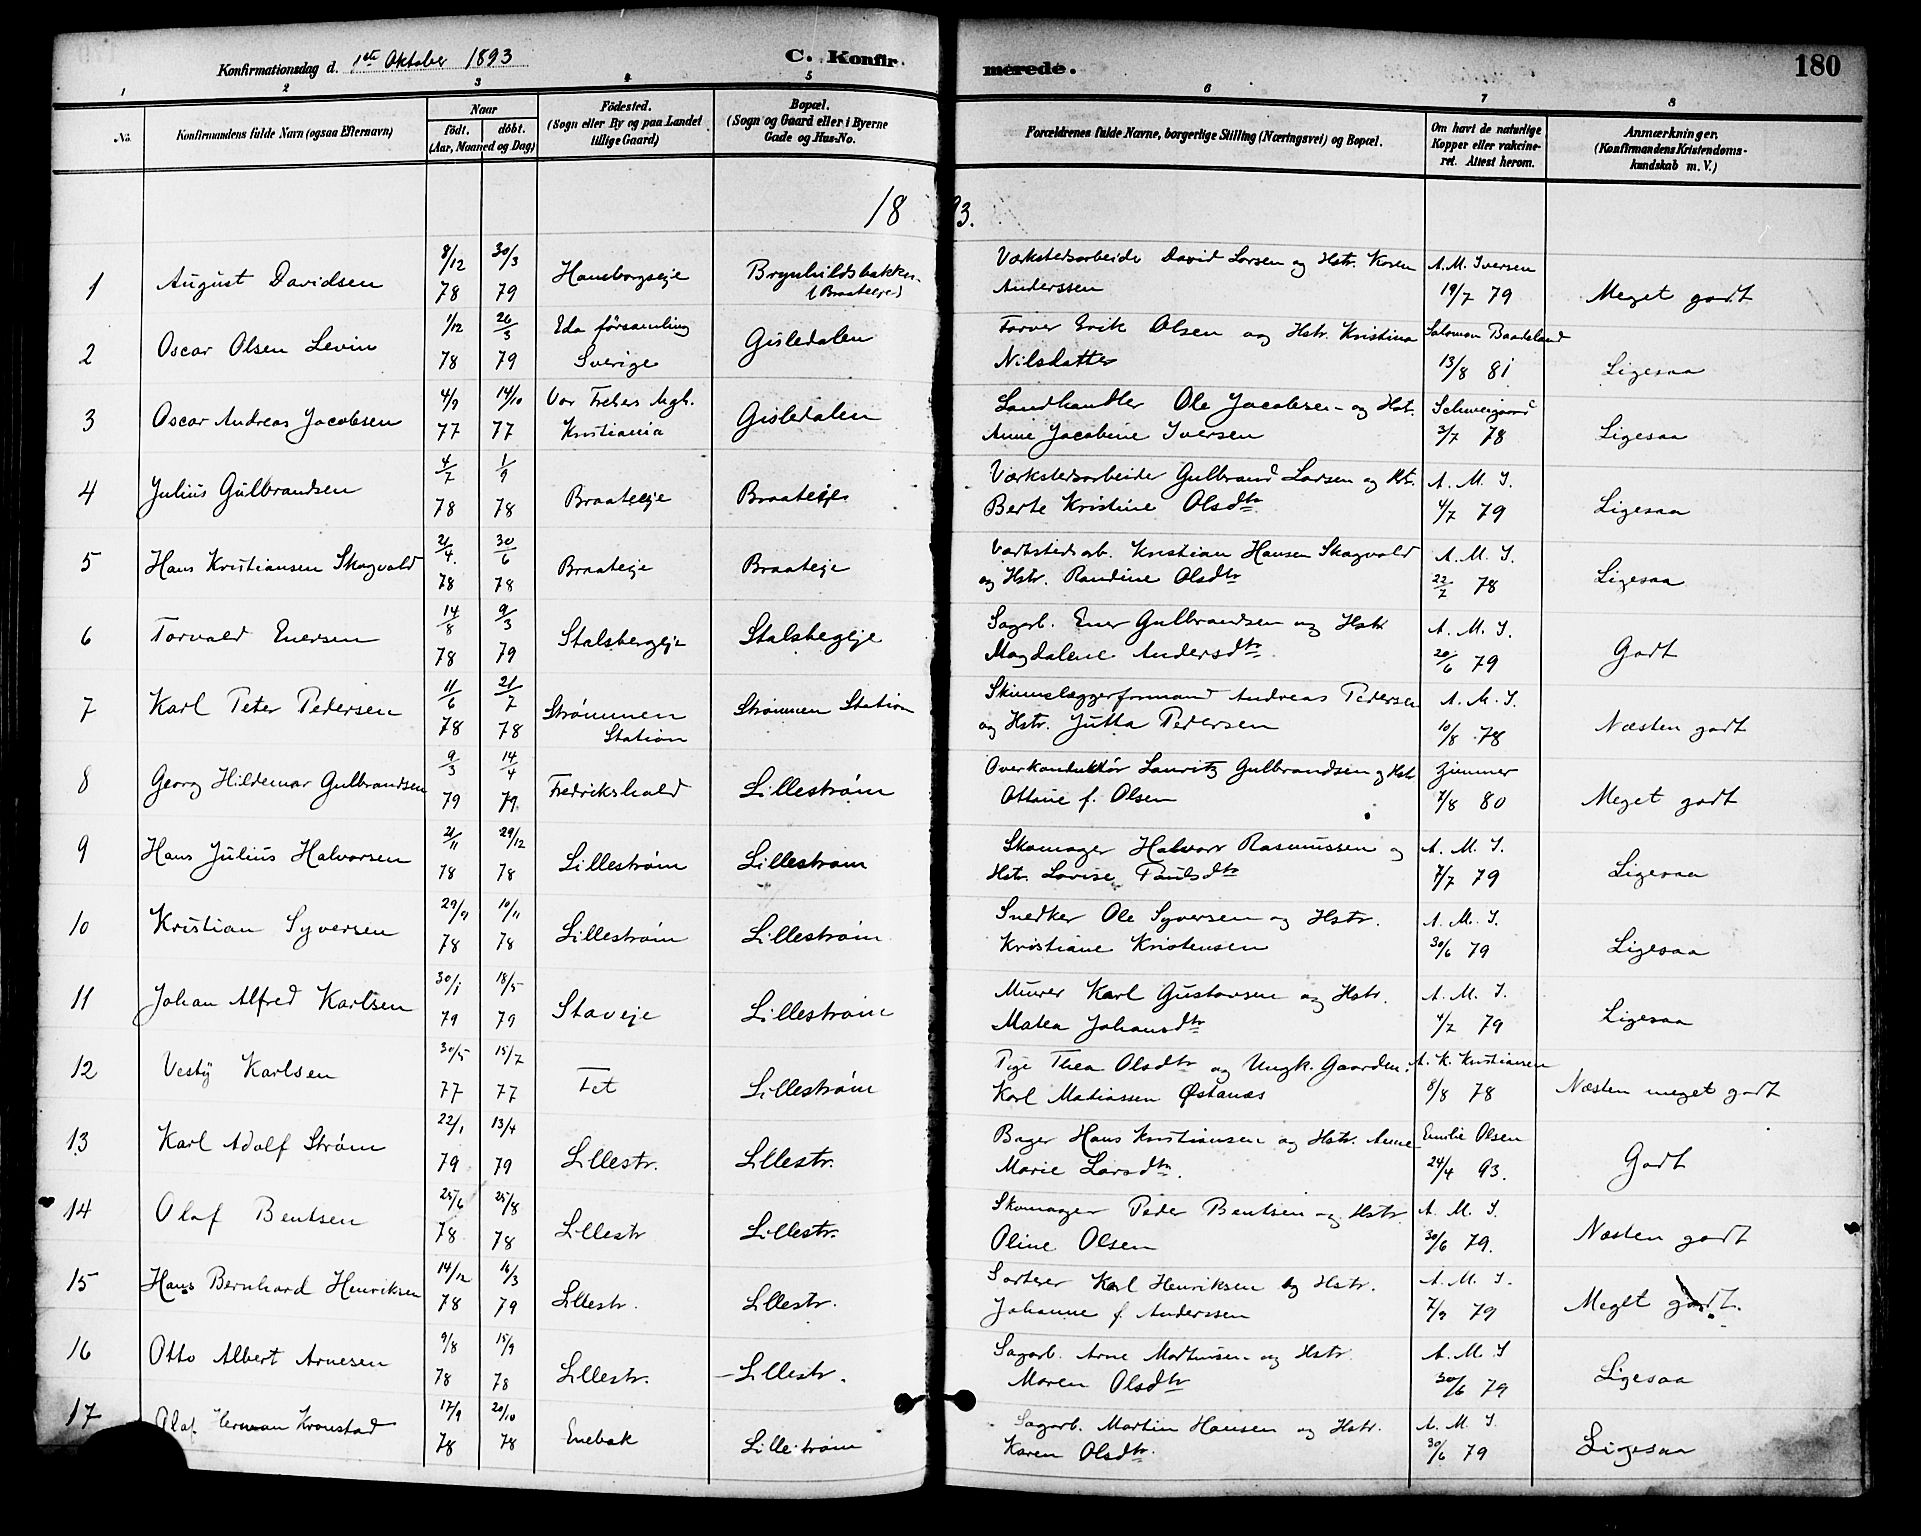 Konfirmationsdag d. 1ste Oktober 1893 C. Konfir-merede. 180
1 2 3 4 5 6 7 8
No. Konfirmandens fulde Navn (ogsaa Efternavn) Naar födt. döbt. (Aar, Maaned og Dag) Födested. (Sogn eller By og paa Landet tillige Gaard) Bopæl. (Sogn og Gaard eller i Byerne Gade og Hus-No. Forældrenes fulde Navne, borgerlige Stilling (Næringsvei) og Bopæl. Om havt de naturlige Kopper eller vakcine-ret. Attest herom. Anmærkninger. (Konfirmandens Kristendoms-kundskab m. V.)
1893.
1 August Davidsen 8/12 78 30/3 79 Hansborgseje Brynhildsbakken (Braateeje) Værkstedsarbeide David Larsen og Hstr. Karen Anderssen A. M. Iversen 19/7 79 Meget godt
2 Oscar Olsen Levin 1/12 78 26/3 79 Eda församling Sverige Gisledalen Farver Erik Olsen og Hstr. Kristina Nilsdatter Salomon Baadeland 13/8 81 Ligesaa
3 Oscar Andreas Jacobsen 4/9 77 14/10 77 Vor Frelsers Mgh. Kristiania Gisledalen Landhandler Ole Jacobsen og Hst. Anne Jacobine Iversen Schweigaard 3/7 78 Ligesaa
4 Julius Gulbrandsen 4/7 78 1/9 78 Braateeje Braateeje Værkstedsarbeider Gulbrand Larsen og Hst. Berte Kristine Olsdtr A. M. I. 4/7 79 Ligesaa
5 Hans Kristiansen Skogvold 21/4. 78 30/6 78 Braateje Braateje Værkstedsarb. Kristian Hansen Skogvold og Hstr. Randine Olsdtr A. M. I. 22/7 78 Ligesaa
6 Torvald Enersen 14/8 78 9/3 79 Stalsbergeje Stalsbegeje Sagarb. Ener Gulbrandsen og Hstr Magdalene Andersdtr A. M. I. 20/6 79 Godt
7 Karl Peter Pedersen 11/6 78 21/7 78 Strømmen Station Strømmen Station Skinnelæggerformand Andreas Pedersen og Hstr. Jutta Pedersen A. M. I. 10/8 78 Næsten godt
8 Georg Hildemar Gulbrandsen 9/3 79 14/4 79. Fredrikshald Lillestrøm Overkonduktør Lauritz Gulbrandsen og Hstr Ottine f. Olsen Zimmer 7/8 80 Meget godt
9 Hans Julius Halvorsen 21/11 78 29/12 78 Lillestrøm Lillestrøm Skomager Halvor Rasmussen og Hstr. Lovise Paulsdtr A. M. I. 7/7 79 Ligesaa
10 Kristian Syversen 29/9 78 10/11 78 Lillestrøm Lillestrøm Snedker Ole Syversen og Hstr. Kristiane Kristensen A. M. I. 30/6 79 Ligesaa
11 Johan Alfred Karlsen 30/1 79 18/5 79 Staveje Lillestrøm Murer Karl Gustavsen og Hstr. Matea Johansdtr A. M. I. 4/7 79 Ligesaa
12 Vesty Karlsen 30/5 77 15/7 77 Fet Lillestrøm Pige Thea Olsdtr og Ungk. Gaarden. Karl Matiassen Østanæs A. K. Kristiansen 8/8 78 Næsten meget godt
13 Karl Adolf Strøm 22/1 79 13/4 79 Lillestr. Lillestr. Bager Hans Kristiansen og Hstr. Anne Marie Larsdtr. Emilie Olsen 24/4 93. Godt
14 Olaf Bentsen 25/6 78. 25/8 78 Lillestr Lillestr. Skomager Peder Bentsen og Hstr. Oline Olsen A. M. I. 30/6 79. Næsten godt
15 Hans Bernhard Henriksen 14/12 78 16/3 79 Lillestr. Lillestr. Sorterer Karl Henriksen og Hstr. Johanne f. Anderssen A. M. I. 7/9 79 Meget godt.
16 Otto Albert Arnesen 9/8 78 15/9 78 Lillestr. Lillestr. Sagarb. Arne Mortinsen og Hstr. Maren Olsdtr A. M. I 30/6 79 Ligesaa
17 Olaf Herman Kronstad 17/9 78 20/10 78 Enebak Lillestrøm Sagarb. Martin Hansen og Hstr. Karen Olsdtr. A. M. I. 30/6 79 Ligesaa